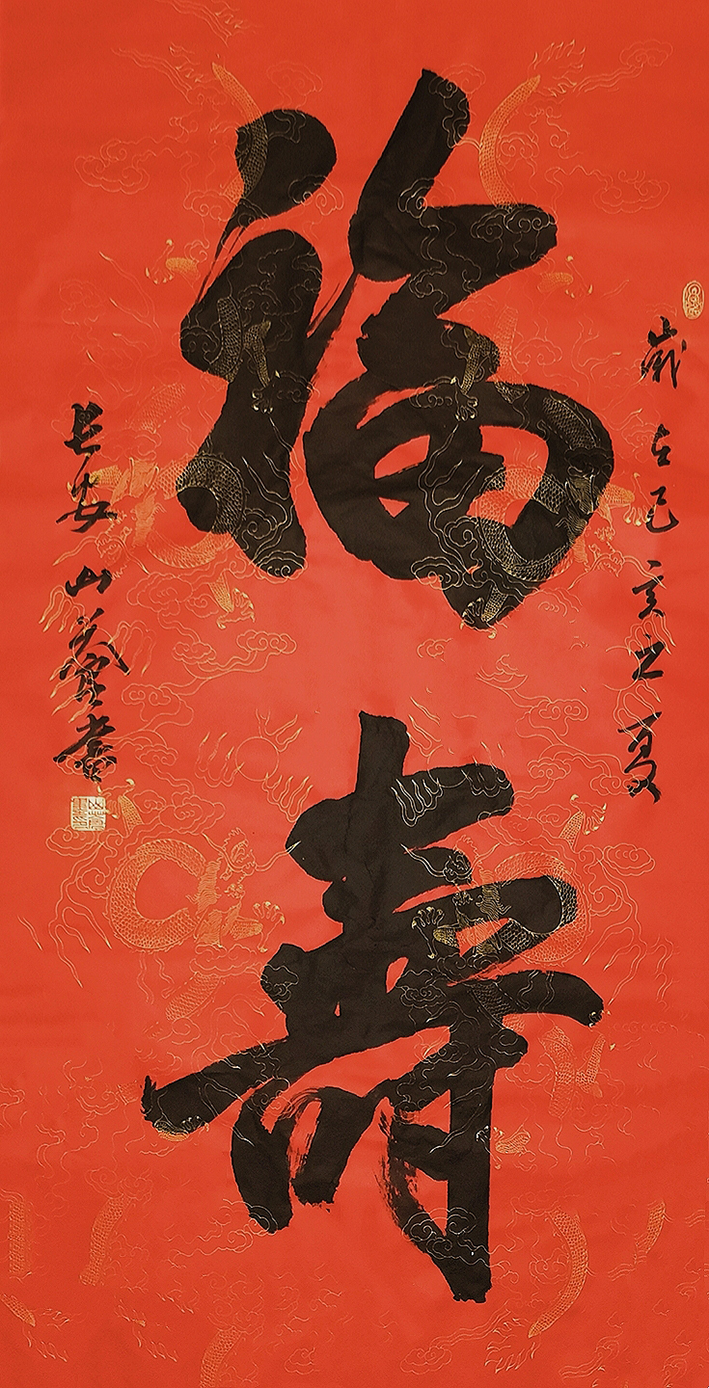 歲在己亥之夏
福壽
長安山泰書